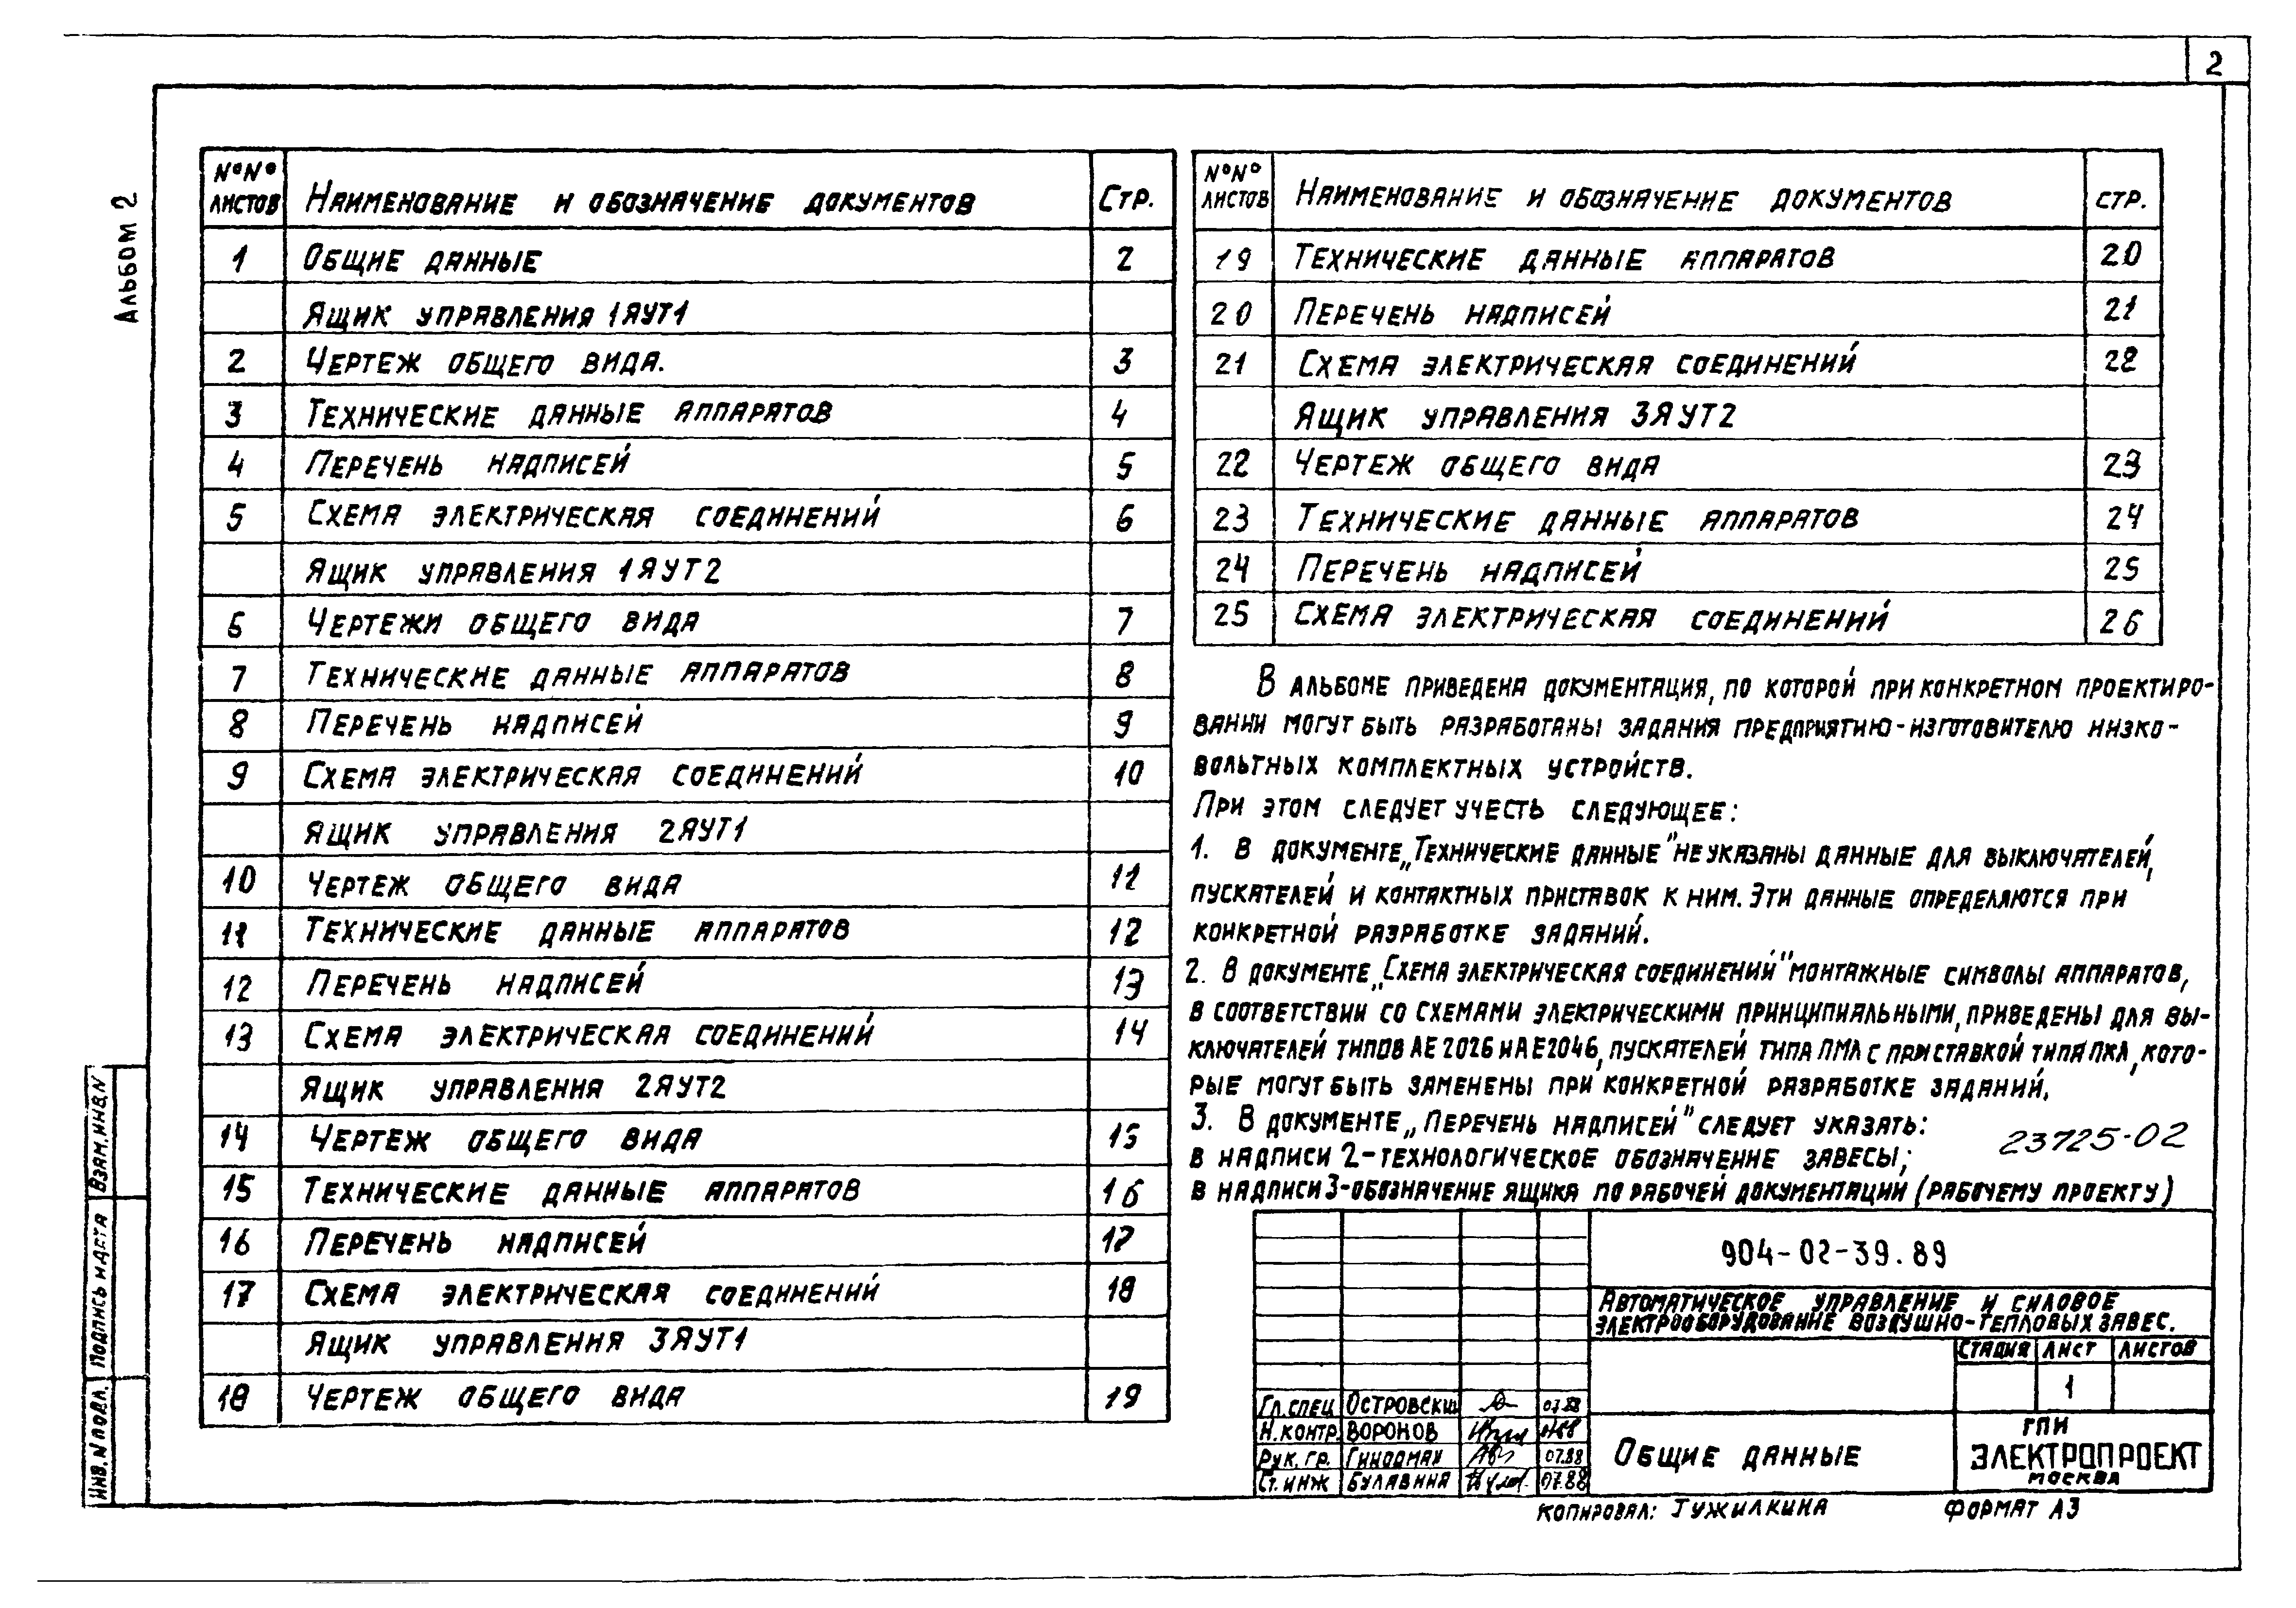 2
Альбом 2
№№ листов Наименование и обозначение документов Стр.
1 Общие данные 2
Ящик управления 1ЯУТ1
2 Чертеж общего вида. 3
3 Технические данные аппаратов 4
4 Перечень надписей 5
5 Схема электрическая соединений 6
Ящик управления 1ЯУТ2
6 Чертежи общего вида 7
7 Технические данные аппаратов 8
8 Перечень надписей 9
9 Схема электрическая соединений 10
Ящик управления 2ЯУТ1
10 Чертеж общего вида 11
11 Технические данные аппаратов 12
12 Перечень надписей 13
13 Схема электрическая соединений 14
Ящик управления 2ЯУТ2
14 Чертеж общего вида 15
15 Технические данные аппаратов 16
16 Перечень надписей 17
17 Схема электрическая соединений 18
Ящик управления 3ЯУТ1
18 Чертеж общего вида 19
№№ листов Наименование и обозначение документов стр.
19 Технические данные аппаратов 20
20 Перечень надписей 21
21 Схема электрическая соединений 22
Ящик управления 3ЯУТ2
22 Чертеж общего вида 23
23 Технические данные аппаратов 24
24 Перечень надписей 25
25 Схема электрическая соединений 26
В альбоме приведена документация, по которой при конкретном проектиро-
вании могут быть разработаны задания предприятию-изготовителю низко-
вольтных комплектных устройств.
При этом следует учесть следующее:
1. В документе „Технические данные" не указаны данные для выключателей,
пускателей и контактных приставок к ним. Эти данные определяются при
конкретной разработке заданий.
2. В документе „Схема электрическая соединений" монтажные символы аппаратов,
в соответствии со схемами электрическими принципиальными, приведены для вы-
ключателей типов АЕ2026 и АЕ2046, пускателей типа ПМЛ с приставкой типа ПКЛ, кото-
рые могут быть заменены при конкретной разработке заданий.
3. В документе „Перечень надписей" следует указать:
в надписи 2-технологическое обозначение завесы;
в надписи 3-обозначение ящика по рабочей документации (рабочему проекту)
23725-02
904-02-39.89
Автоматическое управление и силовое
электрооборудование воздушно-тепловых завес.
Стадия Лист Листов
1
Гл.спец Островский 07.88
Н.контр. Воронов
Рук. гр. 07.88
Ст. инж Булавина 07.88
Общие данные
ГПИ
Электропроект
Москва
Копировал: Тужилкина Формат А3
Взам.инв.N
Подпись и дата
Инв. N подл.